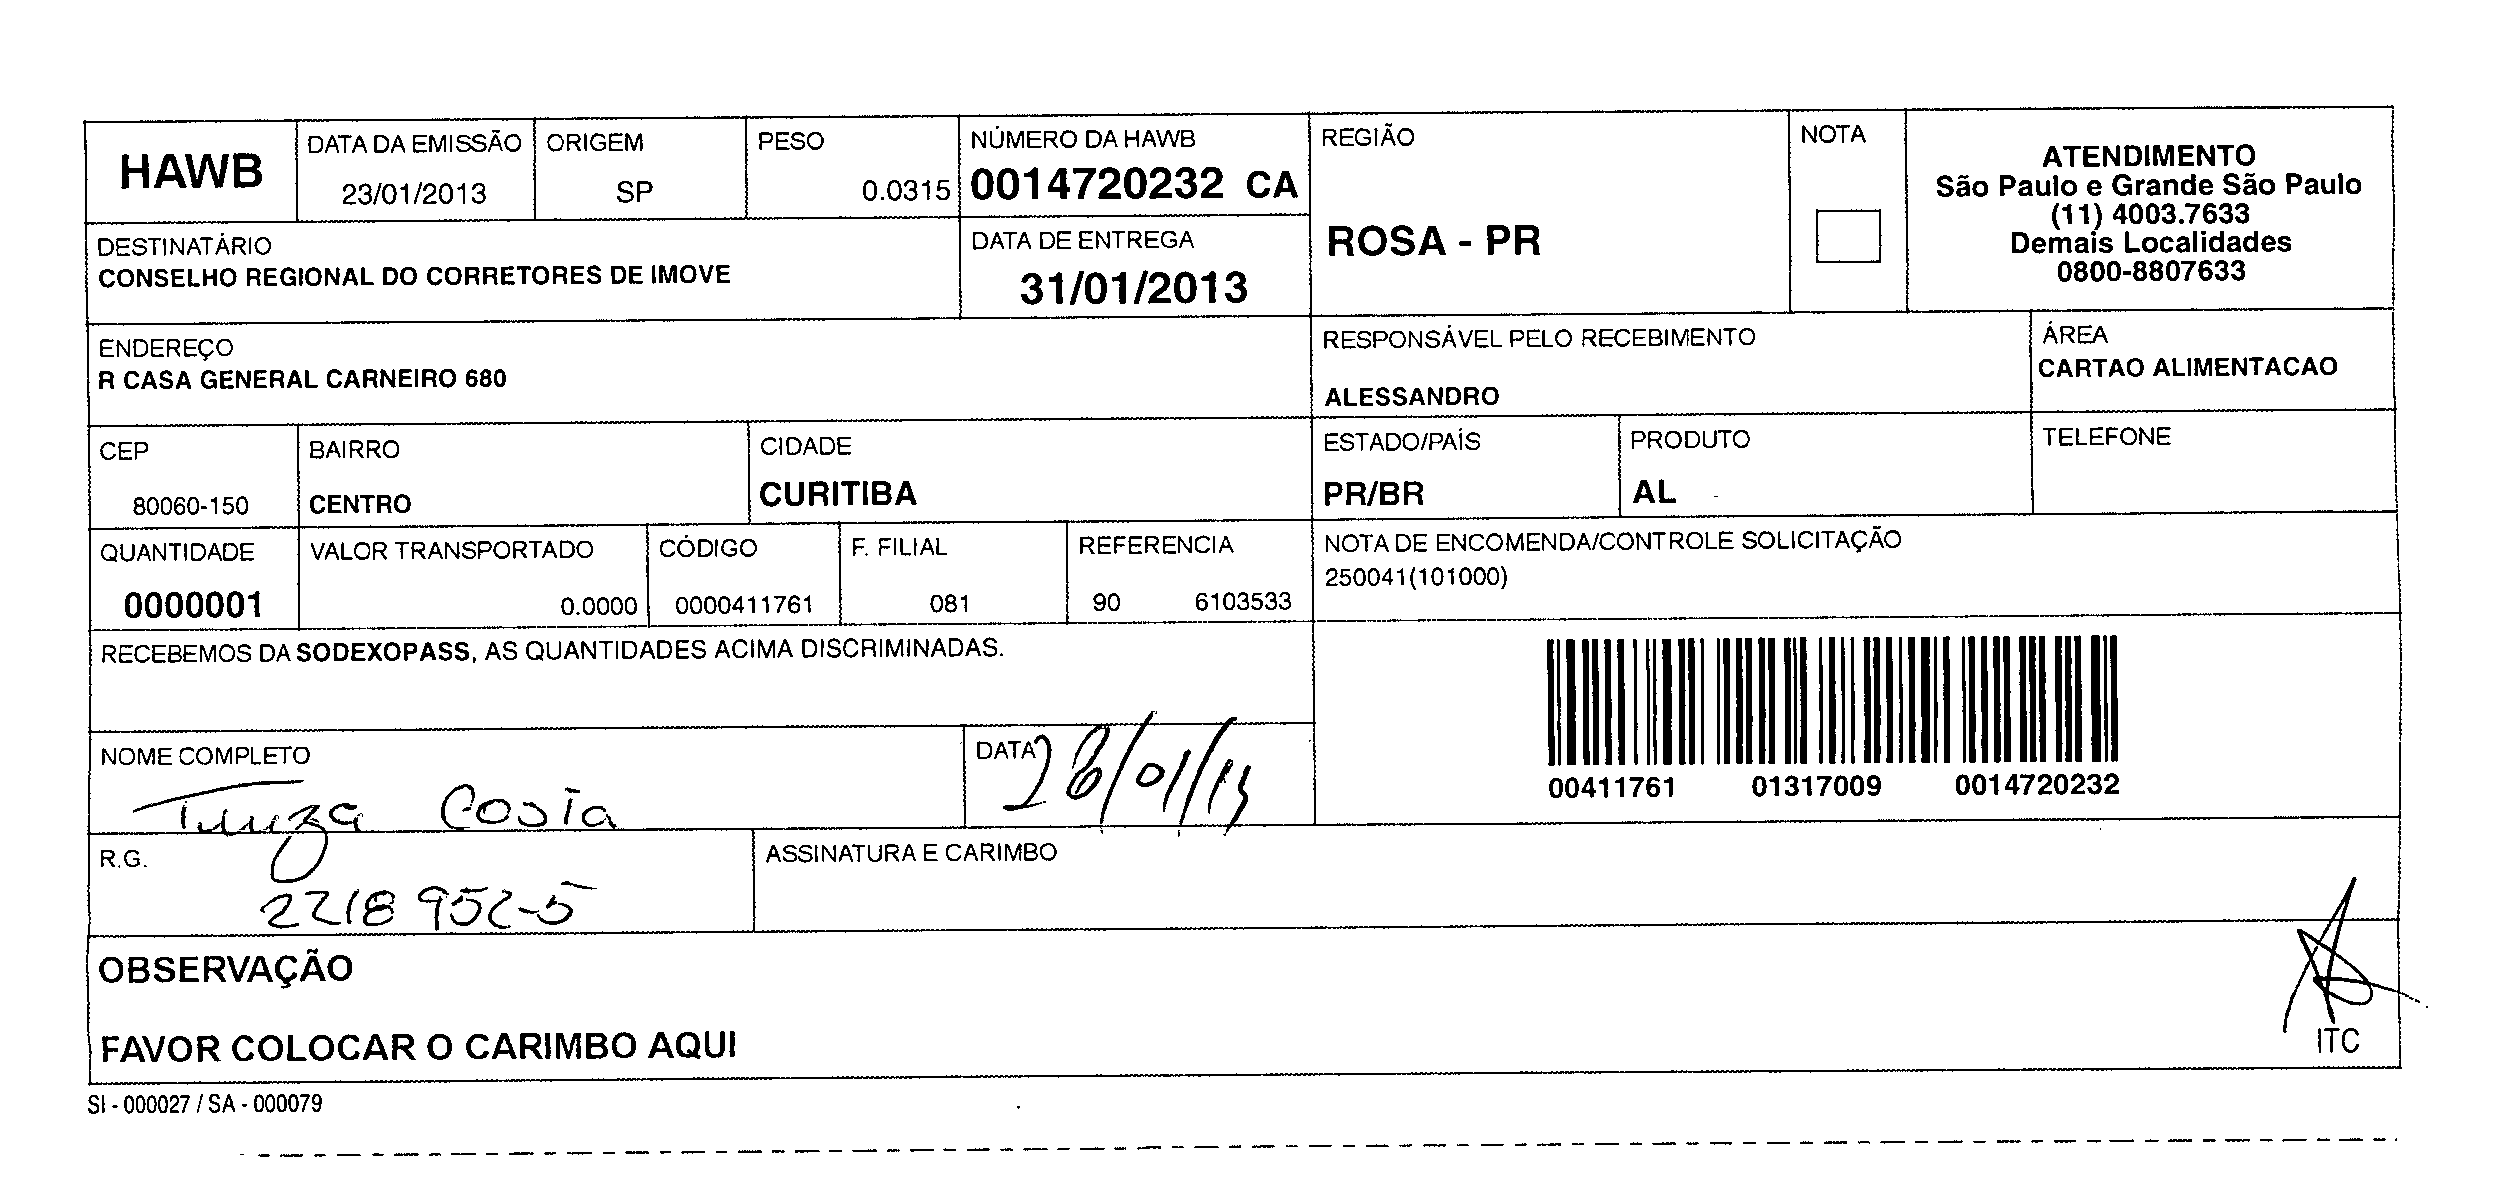 HAWB
DATA DA EMISSÃO
23/01/2013
ORIGEM
SP
PESO
0.0315
NÚMERO DA HAWB
0014720232 CA
REGIÃO
ROSA - PR
NOTA
ATENDIMENTO
São Paulo e Grande São Paulo
(11) 4003.7633
Demais Localidades
0800-8807633
DESTINATÁRIO
CONSELHO REGIONAL DO CORRETORES DE IMOVE
DATA DE ENTREGA
31/01/2013
ENDEREÇO
R CASA GENERAL CARNEIRO 680
RESPONSÁVEL PELO RECEBIMENTO
ALESSANDRO
ÁREA
CARTAO ALIMENTACAO
CEP
80060-150
BAIRRO
CENTRO
CIDADE
CURITIBA
ESTADO/PAÍS
PR/BR
PRODUTO
AL
TELEFONE
QUANTIDADE
0000001
VALOR TRANSPORTADO
0.0000
CÓDIGO
0000411761
F. FILIAL
081
REFERENCIA
90 6103533
NOTA DE ENCOMENDA/CONTROLE SOLICITAÇÃO
250041(101000)
RECEBEMOS DA SODEXOPASS, AS QUANTIDADES ACIMA DISCRIMINADAS.
00411761 01317009 0014720232
NOME COMPLETO
Costa
DATA
R.G.
2218952-5
ASSINATURA E CARIMBO
OBSERVAÇÃO
FAVOR COLOCAR O CARIMBO AQUI
ITC
SI - 000027 / SA - 000079